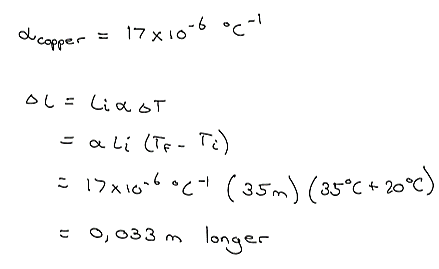 α copper = 17 × 10⁻⁶ °C⁻¹
ΔL = Li α ΔT
= α Li (Tf - Ti)
= 17 × 10⁻⁶ °C⁻¹ (35m) (35°C + 20°C)
= 0,033 m longer